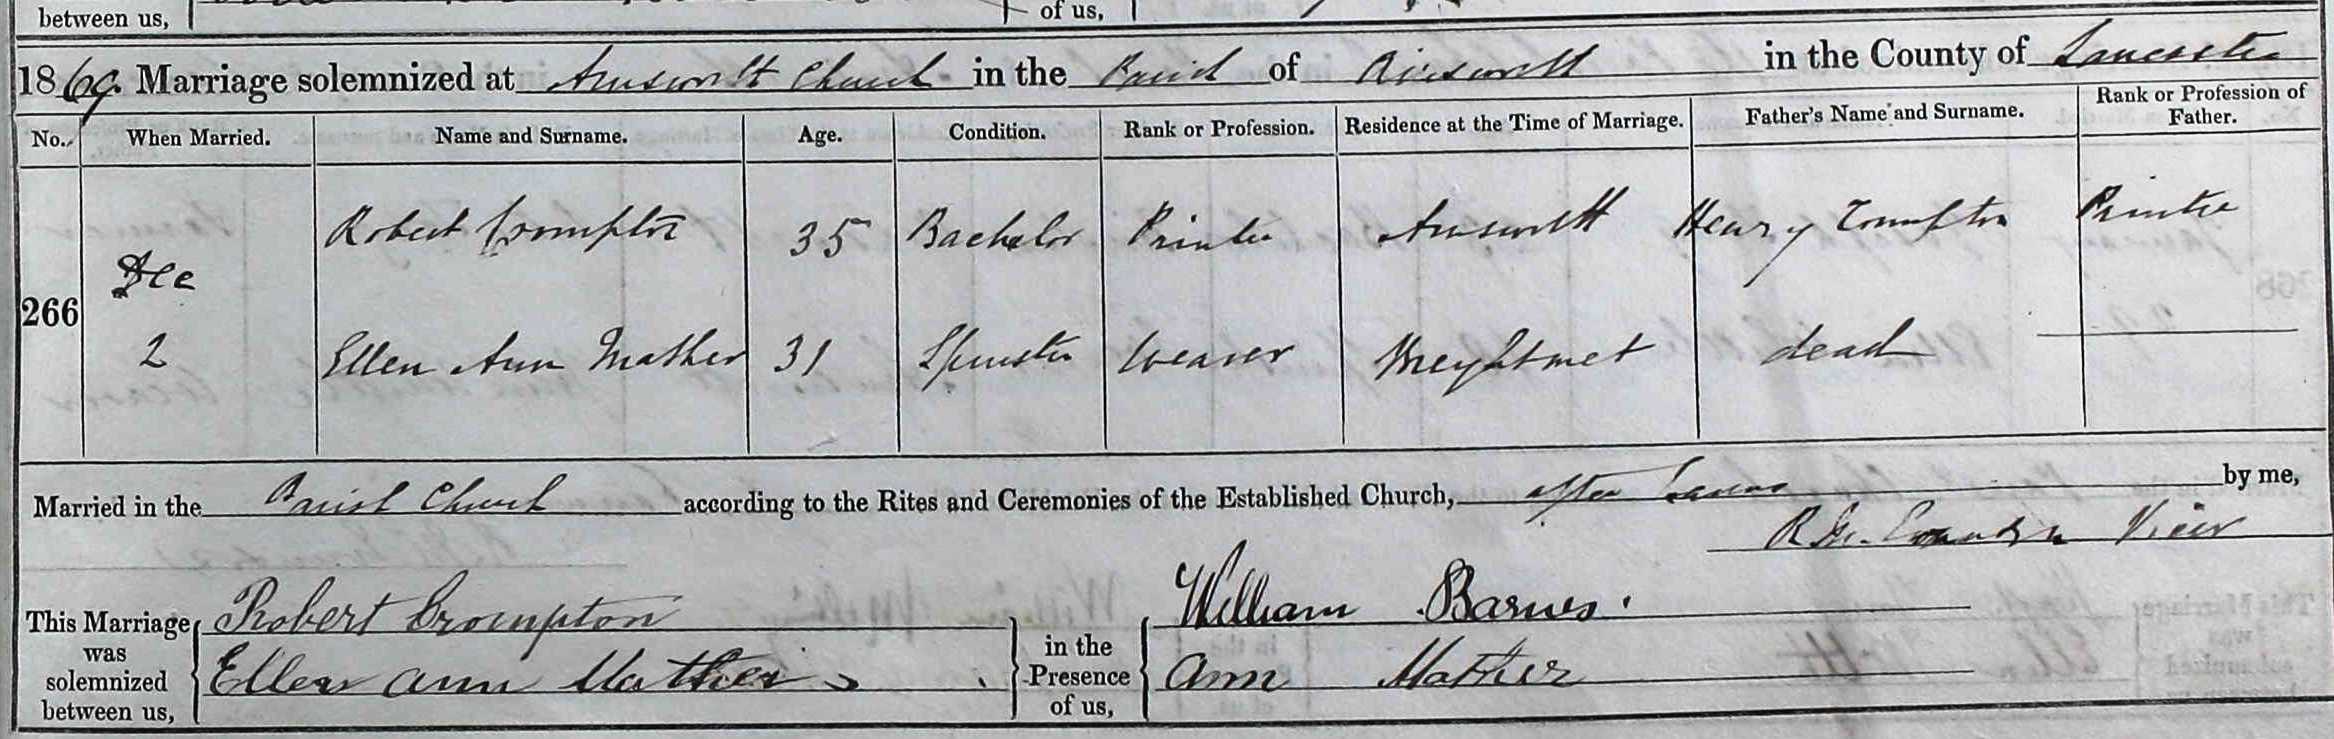 between us, of us,
1869. Marriage solemnized at Ainsworth Church in the Parish of Ainsworth in the County of Lancaster
No. When Married. Name and Surname. Age. Condition. Rank or Profession. Residence at the Time of Marriage. Father's Name and Surname. Rank or Profession of Father.
Robert Crompton 35 Bachelor Printer Ainsworth Henry Crompton Printer
266 Dec
2 Ellen Ann Mather 31 Spinster Weaver Breightmet dead
Married in the Parish Church according to the Rites and Ceremonies of the Established Church, after Banns by me,
This Marriage was solemnized between us, Robert Crompton in the Presence of us, William Barnes.
Ellen Ann Mather Ann Mather